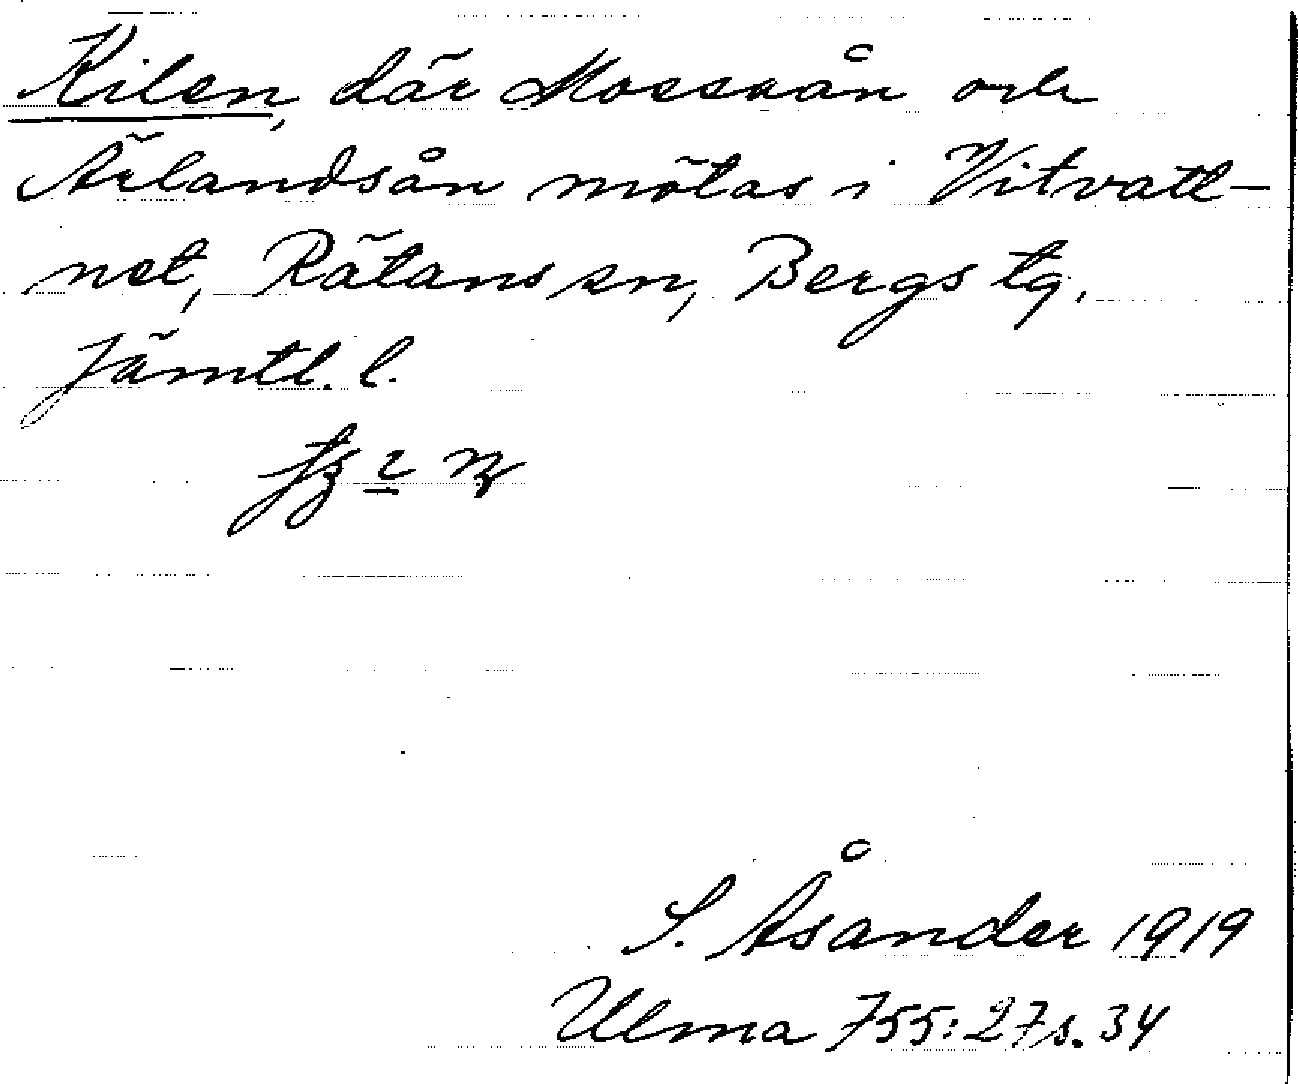 Kilen, där Mosskån och
Ärlandsån mötas i Vitvatt-
net, Rätans sn, Bergs tg,
Jämtl. l.
S. Åsander 1919
Ulma 755:27 s. 34